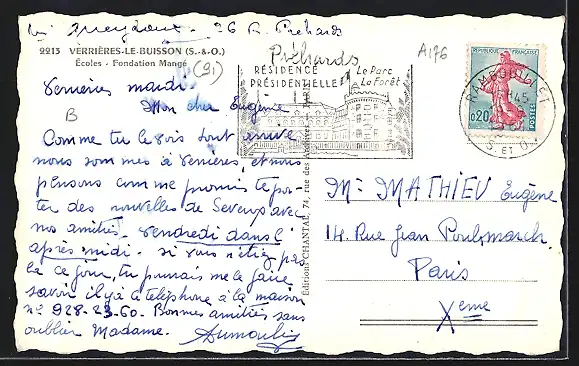 26 R. Préhards
2213 VERRIÈRES-LE-BUISSON (S.-&-O.)
Écoles - Fondation Mangé
(91)
Préhards
A176
B
RÉSIDENCE
PRÉSIDENTIELLE
Le Parc
La Forêt
RAMBOUILLET
S. ET O.
RÉPUBLIQUE FRANÇAISE
0,20
POSTES
Verrières mardi.
Mon cher Eugène
Comme tu le vois tout arrive
nous sommes à Verrières et nous
pensons comme promis te por-
ter des nouvelles de Seveux avec
nos amitiés, vendredi dans l'
après midi. si vous n'étiez pas
là ce jour, tu pourrais me le faire
savoir il y a le téléphone à la maison
n° 928-23-60. Bonnes amitiés sans
oublier Madame. Dumoulin
Éditions CHANTAL, 74, rue des Archives - PARIS
Mr MATHIEU Eugène
14. Rue Jean Poulmarch
Paris
Xeme